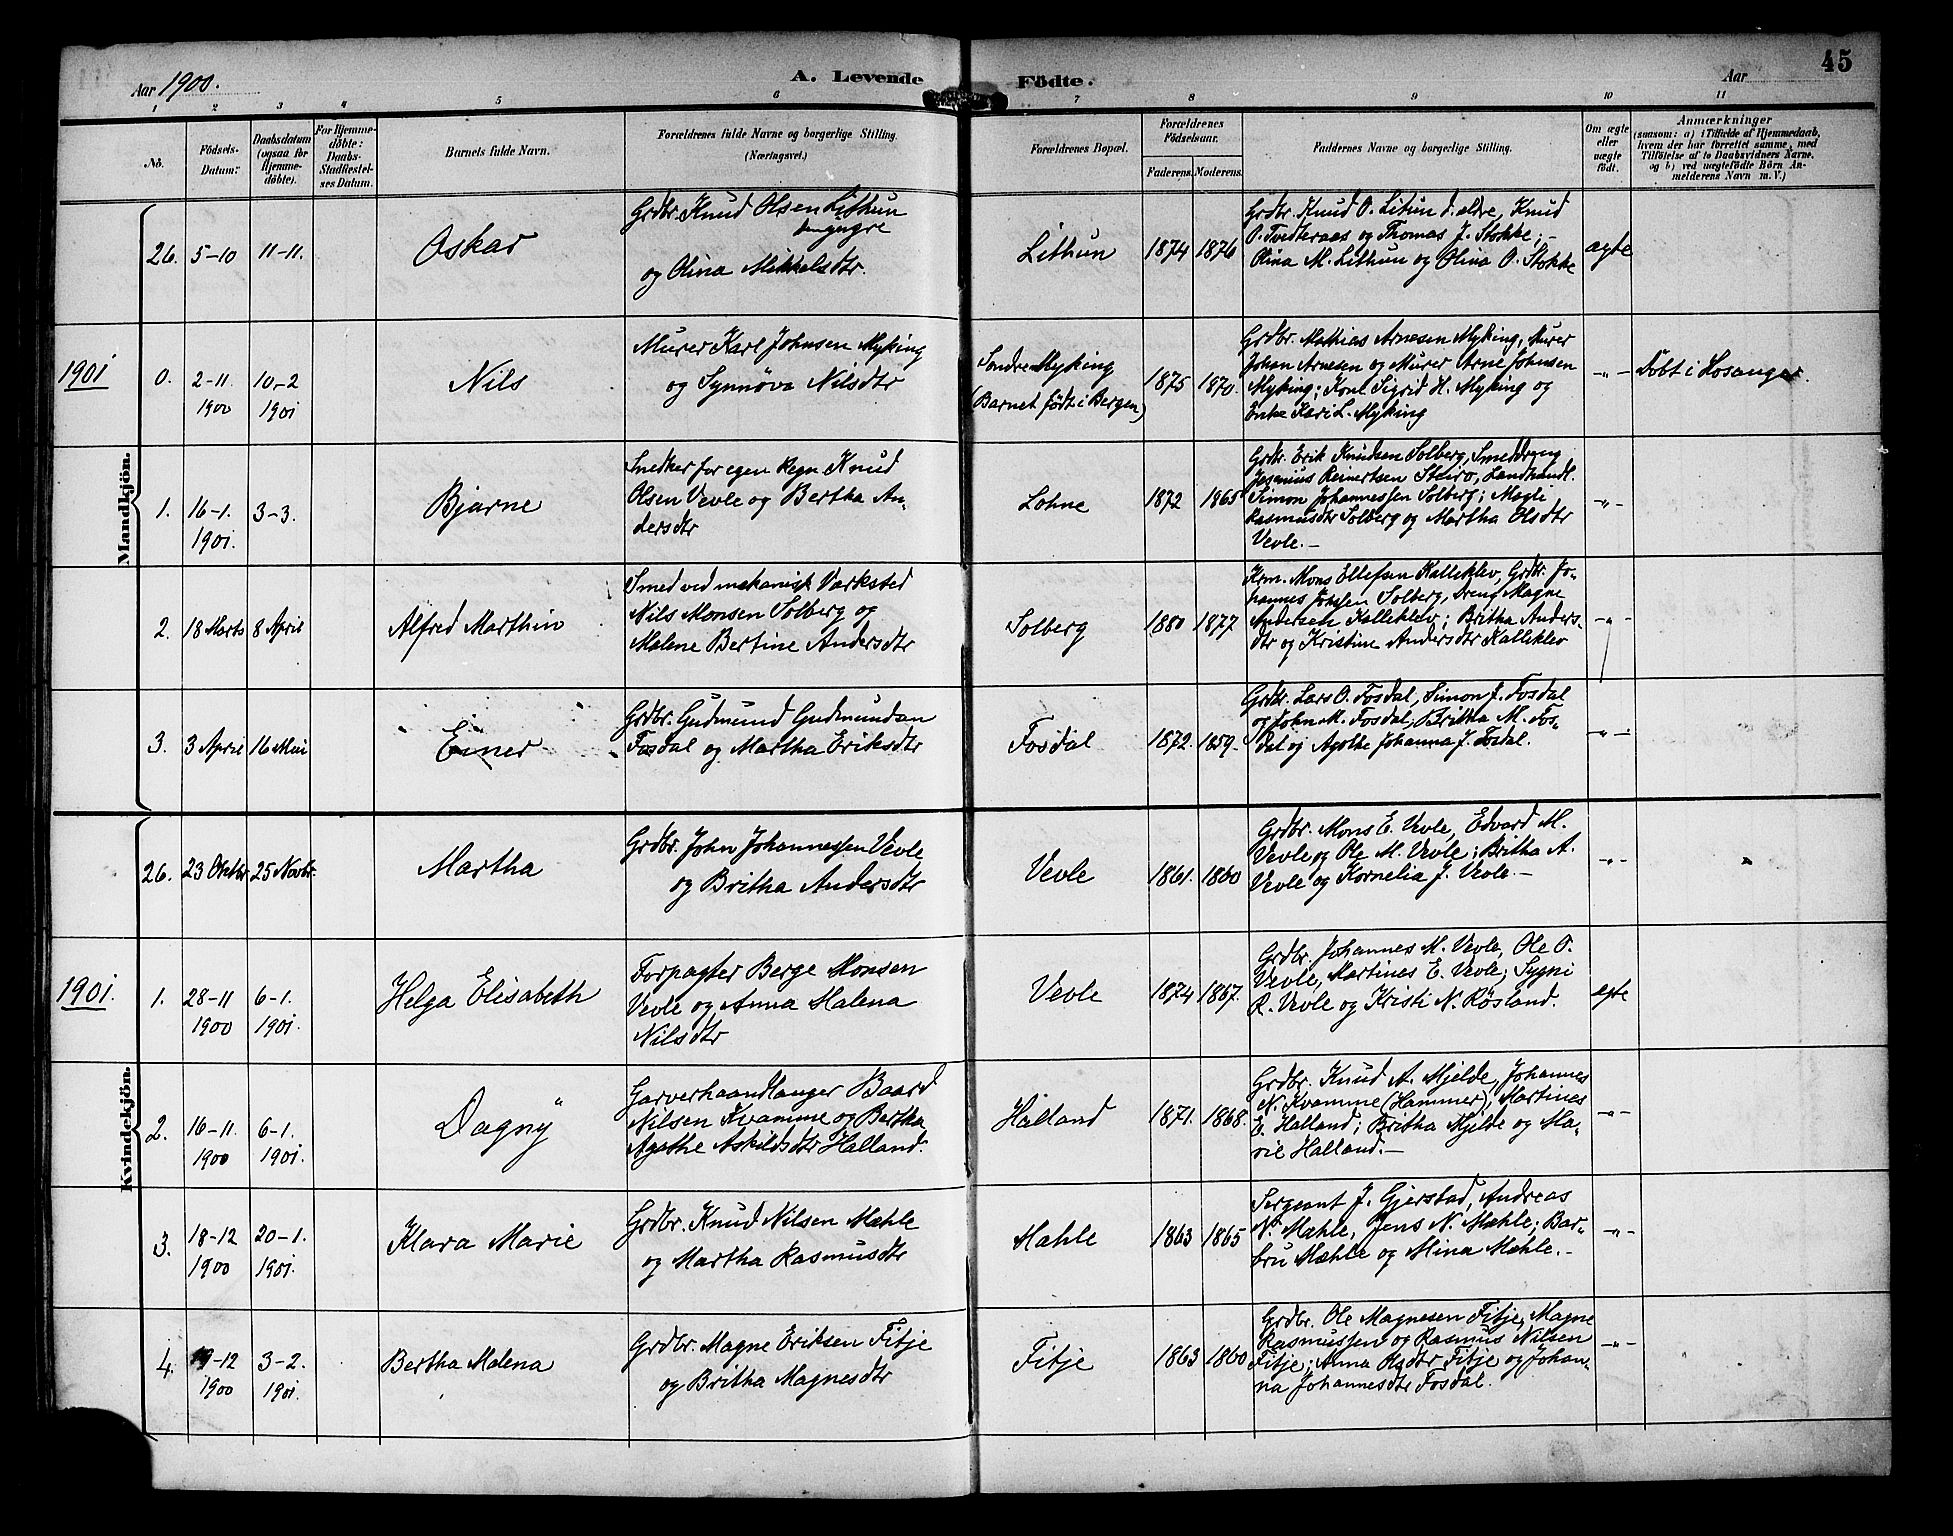 45
Aar 1900.
A. Levende Födte.
Aar
1 2 3 4 5 6 7 8 9 10 11
No.
Födsels-Datum.
Daabsdatum (ogsaa for Hjemme-döbte).
For Hjemme-döbte: Daabs-Stadfæstel-ses Datum.
Barnets fulde Navn.
Forældrenes fulde Navne og borgerlige Stilling.
(Næringsvei.)
Forældrenes Bopæl.
Forældrenes Födselsaar.
Faderens. Moderens.
Faddernes Navne og borgerlige Stilling.
Om ægte eller uægte födt.
Anmærkninger
(saasom: a) i Tilfælde af Hjemmedaab,
hvem der har forrettet samme, med
Tilföielse af to Daabsvidners Navne,
og b) ved uægtefödte Börn An-
melderens Navn m. V.)
Mandkjön.
26. 5-10 11-11.
Oskar
Grdbr. Knud Olsen Lithun
den yngre
og Olina Mikkelsdtr.
Lithun
1874 1876
Grdbr. Knud O. Lithun d. ældre, Knud
O. Tvedteraas og Thomas J. Stokke; -
Olina M. Lithun og Olina O. Stokke
ægte
1901
0. 2-11. 10-2
1900 1901
Nils
Murer Karl Johnsen Myking
og Synnöva Nilsdtr
Söndre Myking
(Barnet födt i Bergen)
1875 1870.
Grdbr. Mathias Arnesen Myking, Murer
Johan Arnesen og Murer Arne Johnsen
Myking; Kone Sigrid H. Myking og
Enke Kari L. Myking
-"-
Döbt i Hosanger.
1. 16-1. 3-3.
1901.
Bjarne
Snedker for egen Regn. Knud
Olsen Vevle og Bertha An-
dersdtr
Lohne
1872 1865
Grdbr. Erik Knudsen Solberg, Smeddreng
Rasmus Reinertsen Steiro, Landhandl.
Simon Johannessen Solberg; Magli
Rasmusdtr Solberg og Martha Olsdtr
Vevle. -
-"-
2. 18 Marts 8 April
Alfred Marthin
Smed ved mekanisk Værksted
Nils Monsen Solberg og
Malene Bertine Andersdtr
Solberg
1880 1877.
Krm. Mons Ellefsen Kalleklev, Grdbr. Jo-
hannes Johnsen Solberg, Dreng Magne
Andersen Kalleklev; Britha Anders-
dtr og Kristine Andersdtr Kalleklev
-"-
3. 3 April 16 Mai
Einer
Grdbr. Gudmund Gudmundsen
Fosdal og Martha Eriksdtr
Fosdal
1872. 1859.
Grdbr. Lars O. Fosdal, Simon J. Fosdal
og John M. Fosdal, Britha M. Fos-
dal og Agathe Johanna J. Fosdal.
-"-
Kvindekjön.
26. 23 Oktbr. 25 Novbr.
Martha
Grdbr. John Johannessen Vevle
og Britha Andersdtr
Vevle
1861. 1860
Grdbr. Mons E. Vevle, Edvard M.
Vevle og Ole M. Vevle; Britha A.
Vevle og Kornelia J. Vevle. -
-"-
1901.
1. 28-11 6-1.
1900 1901.
Helga Elisabeth
Forpagter Berge Monsen
Vevle og Anna Malena
Nilsdtr
Vevle
1874 1867.
Grdbr. Johannes M. Vevle, Ole O.
Vevle, Martines E. Vevle; Sygni
R. Vevle og Kristi N. Rösland.
egte
2. 16-11. 6-1.
1900 1901.
Dagny
Garverhaandlanger Baard
Nilsen Kvamme og Bertha
Agathe Askildsdtr Halland.
Halland
1871. 1868.
Grdbr. Knud A. Mjelde, Johannes
N. Kvamme (Hammer), Martines
E. Halland; Britha Mjelde og Ma-
rie Halland. -
-"-
3. 18-12 20-1.
1900 1901.
Klara Marie
Grdbr. Knud Nilsen Mæhle
og Martha Rasmusdtr
Mæhle
1863 1865
Sergeant J. Gjerstad, Andreas
N. Mæhle, Jens N. Mæhle; Bar-
bru Mæhle og Mina Mæhle. -
-"-
4. -12 3-2.
1900 1901.
Bertha Malena
Grdbr. Magne Eriksen Fitje
og Britha Magnesdtr
Fitje
1863 1860
Grdbr. Ole Magnesen Fitje, Magne
Rasmussen og Rasmus Nilsen
Fitje; Anna Olsdtr Fitje og Johan-
na Johannesdtr Fosdal.
-"-